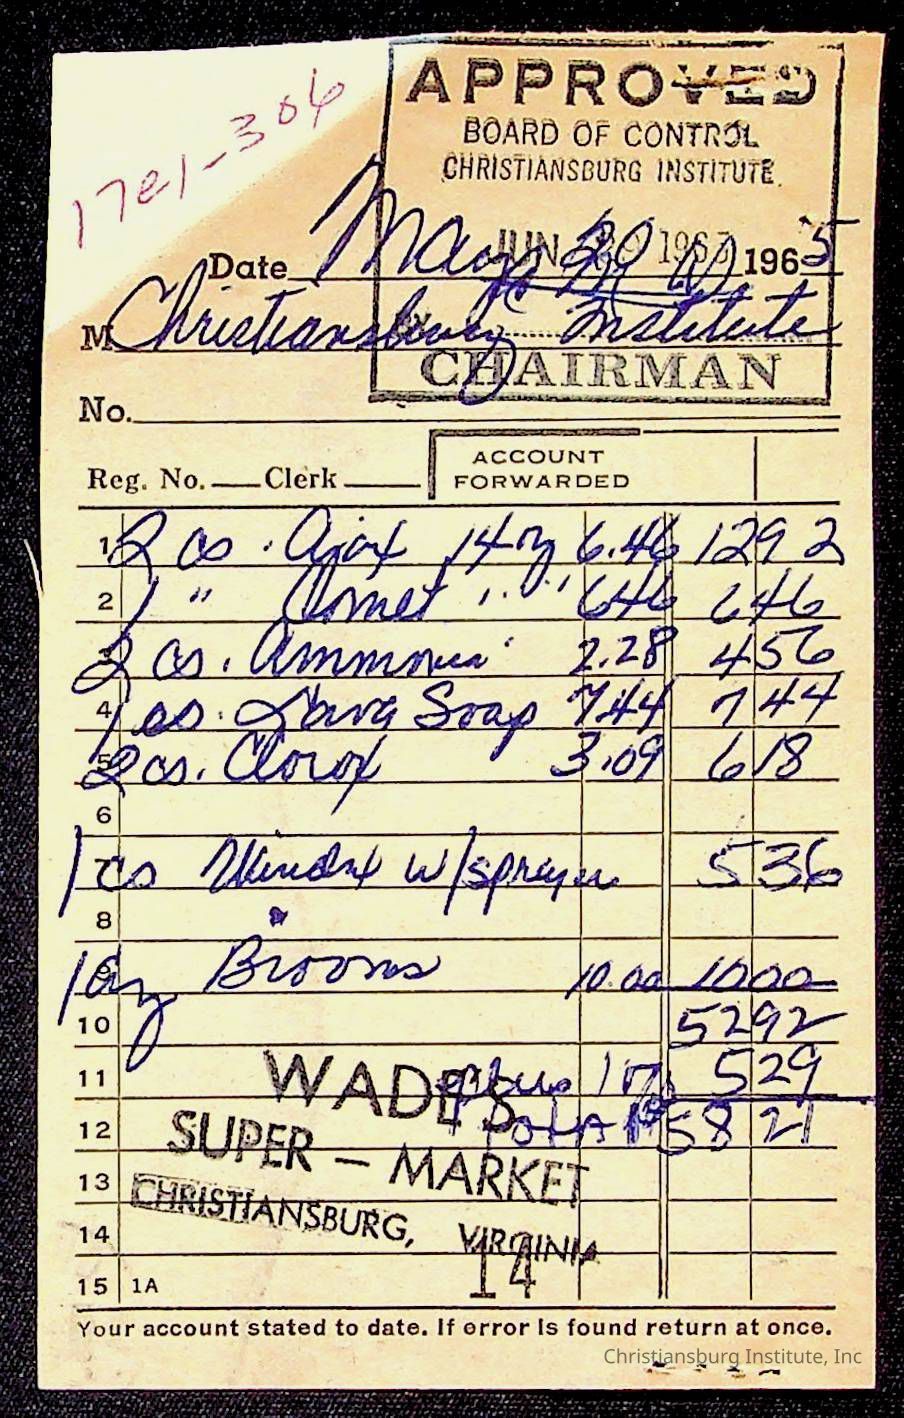 1701-306
APPROVED
BOARD OF CONTROL
CHRISTIANSBURG INSTITUTE.
JUN 1965
Date May 20 1965
M Christiansburg Institute
CHAIRMAN
No.
Reg. No. Clerk ACCOUNT FORWARDED
1 2 cs. Ajax 14 oz 6.46 12 92
2 1 " Comet " " 646 6 46
3 2 cs. Ammonia 2.28 4 56
4 1 cs. Lava Soap 7.44 7 44
5 2 cs. Clorox 3.09 6 18
6
7 1 cs Windex w/sprayer 5 36
8
9 1 dz Brooms 10.00 10 00
10 52 92
11 Plus 10% 5 29
12 Total 58 21
WADE'S
SUPER - MARKET
CHRISTIANSBURG, VIRGINIA
13
14
14
15 1A
Your account stated to date. If error is found return at once.
Christiansburg Institute, Inc